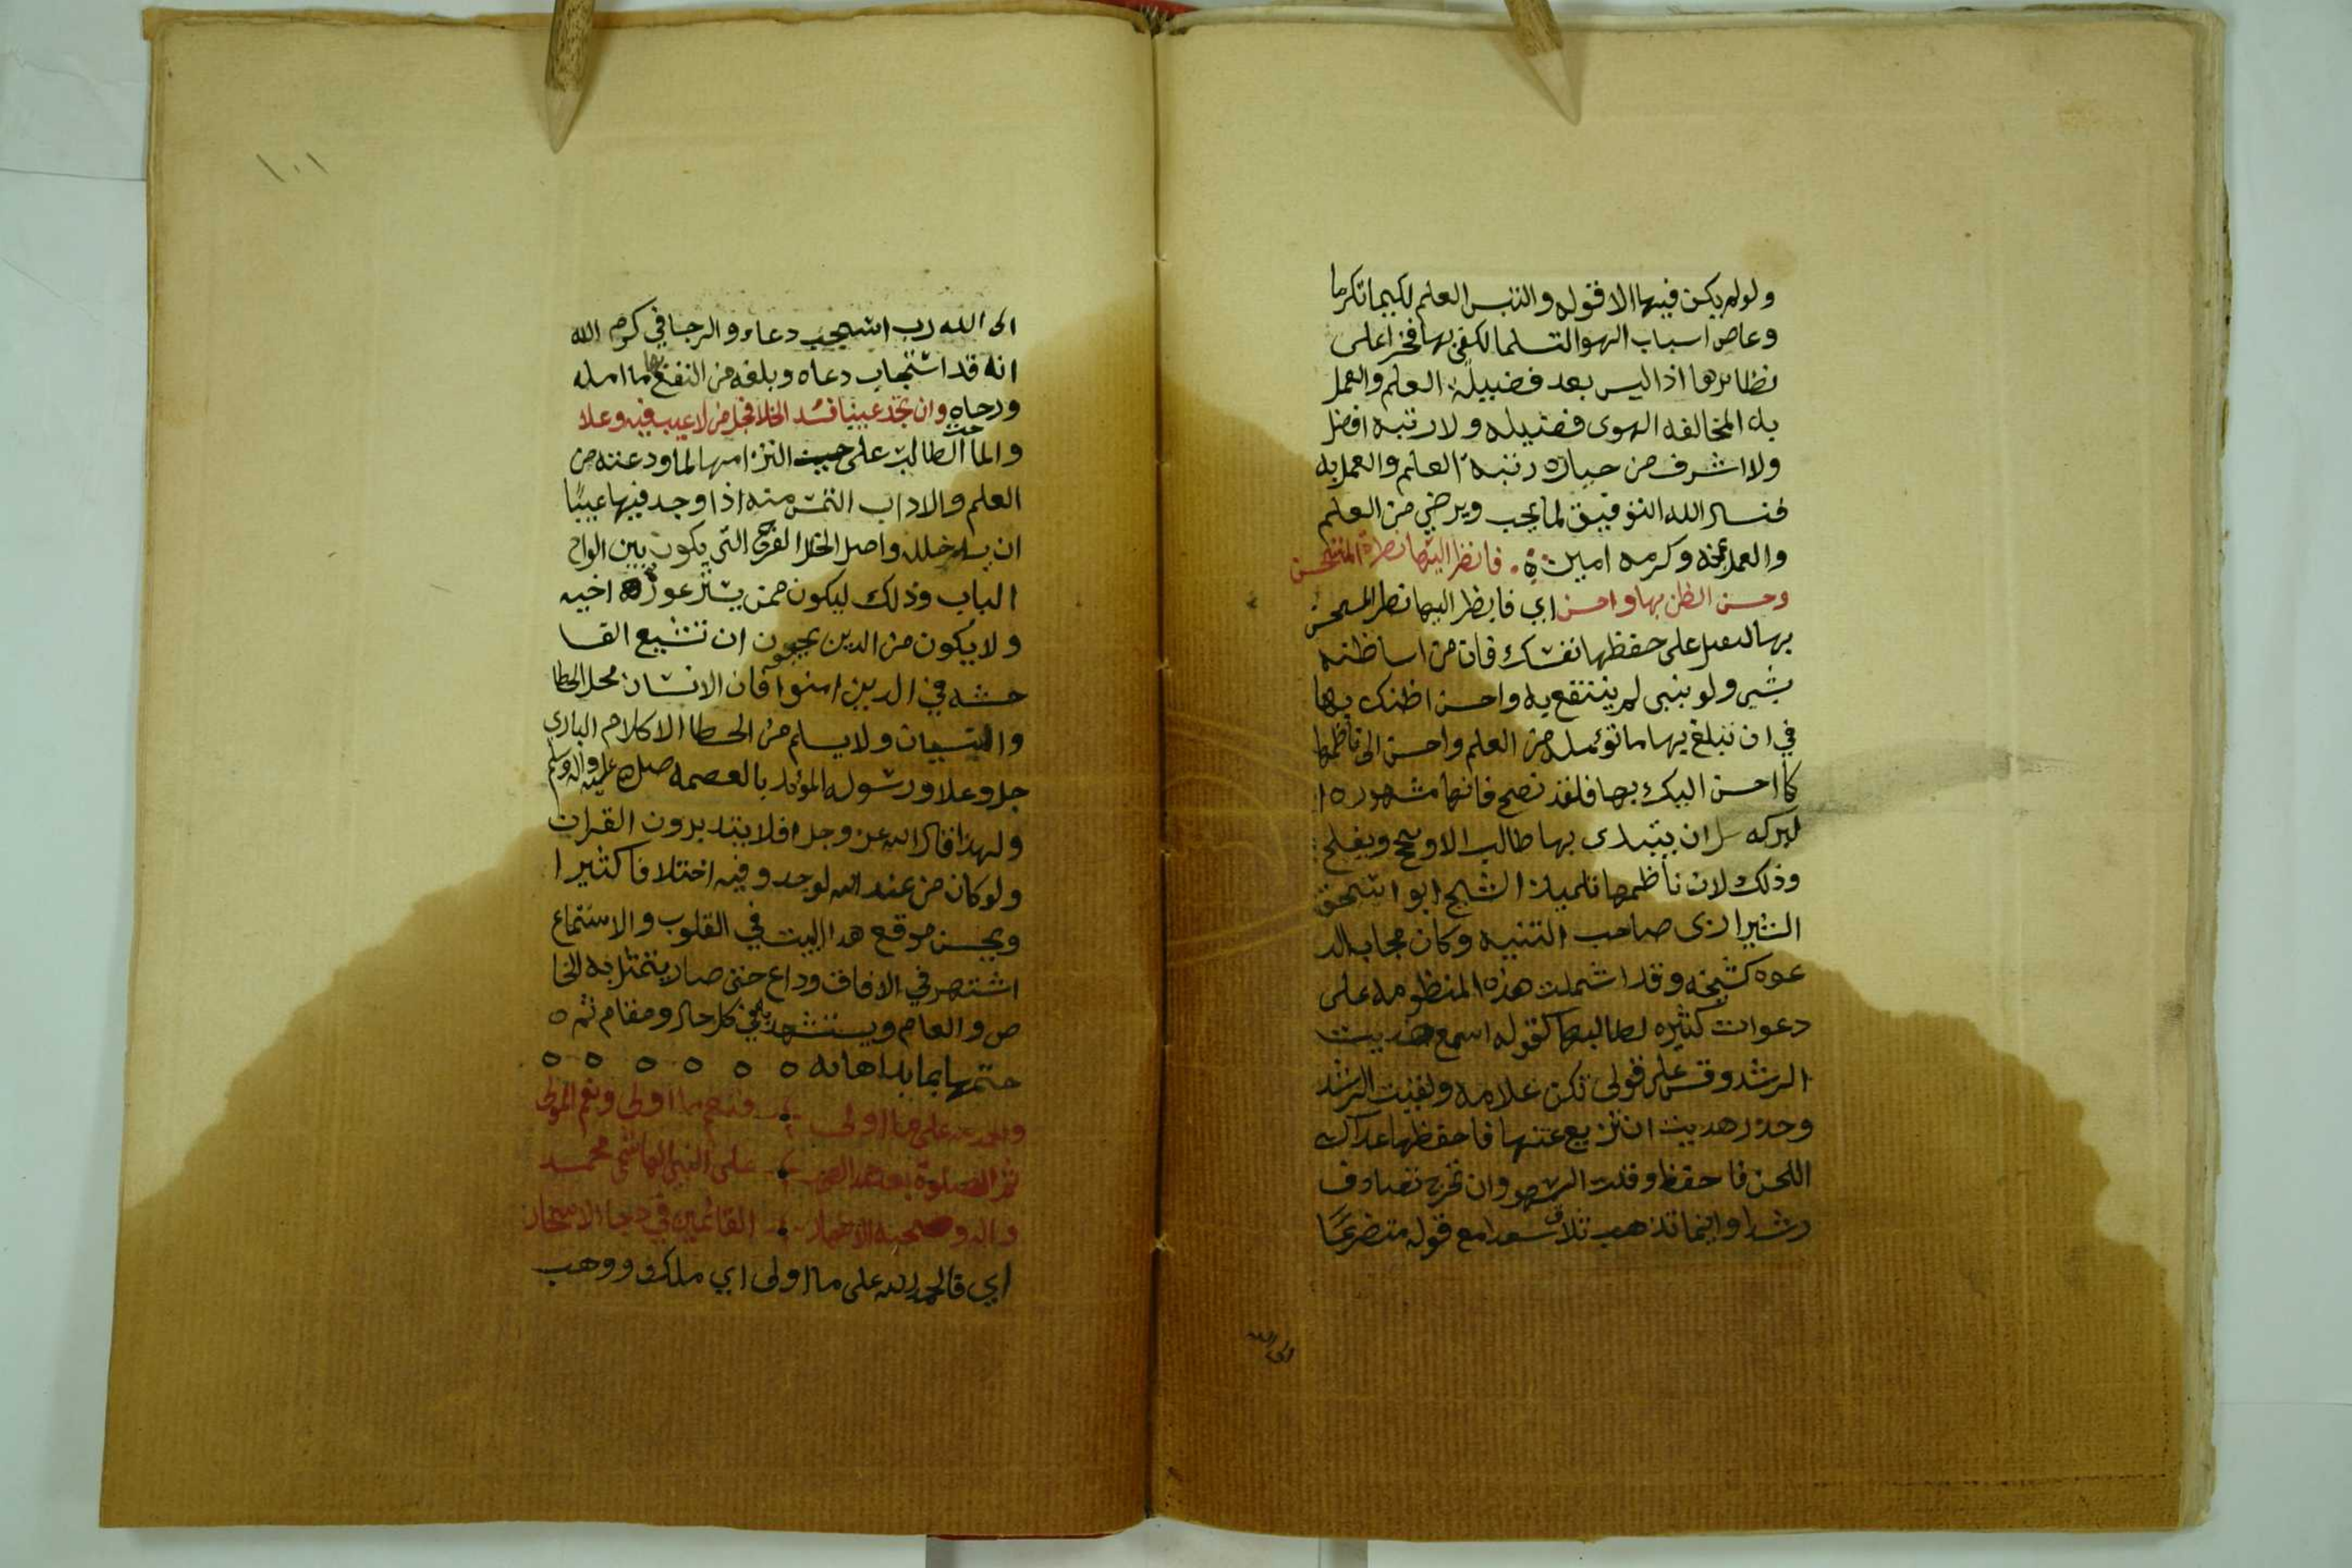 ولولم يكن فيها الا قوله والتبس العلم لكيما تكرما
وعاص اسباب الهوا لتسلما لكفى بها فخرا على
نظائرها اذ اليس بعد فضيلة العلم والعمل
به المخالفه الهوى فضيله ولا رتبه افضل
ولا اشرف من حيازه رتبة العلم والعمل به
فنسال الله التوفيق لما يحب ويرضي من العلم
والعمل بمنه وكرمه امين فانظر اليها نظرة المستحسن
وحسن الظن بها واحسن اي فانظر اليها نظر المستحسن
بها لتقبل على حفظها نفسك فان من اسا ظنه
بشي ولو بنبى لم ينتفع به واحسن اظنك بها
في ان تبلغ بها ما تومله من العلم واحسن الى ناظمها
كما احسن اليك بها فلقد نصح فانها مشهوره ا
لبركه ان يبتدى بها طالب الا وينجح ويفلح
وذلك لان ناظمها تلميذ الشيح ابو اسحق
الشيرازى صاحب التنبيه وكان مجاب الد
عوه كشيخه وقد اشملت هذه المنظومه على
دعوات كثيره لطالبها كقوله اسمع هديت
الرشد وقس على قولى تكن علامه ولقيت الرشد
وحذر هديت ان تزيع عنها فاحفظها عداك
اللحن فاحفظ وقلت السهو وان تخرته تصادف
رشدا واينما تذهب تلاق سعدا مع قوله متضرعًا
الى الله
١٠١
الى الله رب استجب دعاء والرجا في كرم الله
انه قد استجاب دعاه وبلغه من النفع بها ما امله
ورجاه وان تجد عيبا فسد الخلا فجل من لا عيب فيه وعلا
والما حث الطالب على حيث التزامها لما ودعته من
العلم والاداب التمس منه اذا وجد فيها عيبًا
ان يسد خلله واصل الخلل الفرج التي يكون بين الواح
الباب وذلك ليكون ممن يستر عورة اخيه
ولا يكون من الدين يحبون ان تشيع الفا
حشه في الدين امنوا فان الانسان محل الخطا
والنسيان ولا يسلم من الخطا الا كلام البارى
جل وعلا ورسوله المؤيد بالعصمه صلى عليه واله وسلم
ولهذا قال الله عز وجل افلا يتدبرون القران
ولو كان من عند الله لوجدو فيه اختلافا كثيرا
ويحسن موقع هدا البيت في القلوب والاستماع
اشتهر في الافاق وداع حتى صار يتمثل به الخا
ص والعام ويستشهد به في كل حال ومقام ثم ه
ختمها بما بداها به ه ه ه ه ه ه
والحمد لله على ما اولى فنعم ما اولى ونعم المولى
ثم الصلوة بعد حمد الصمد على النبي الهاشمي محمد
واله وصحبه الاطهار القائمين في دجا الاسحار
اي قالحمد لله على ما اولى اي ملك ووهب